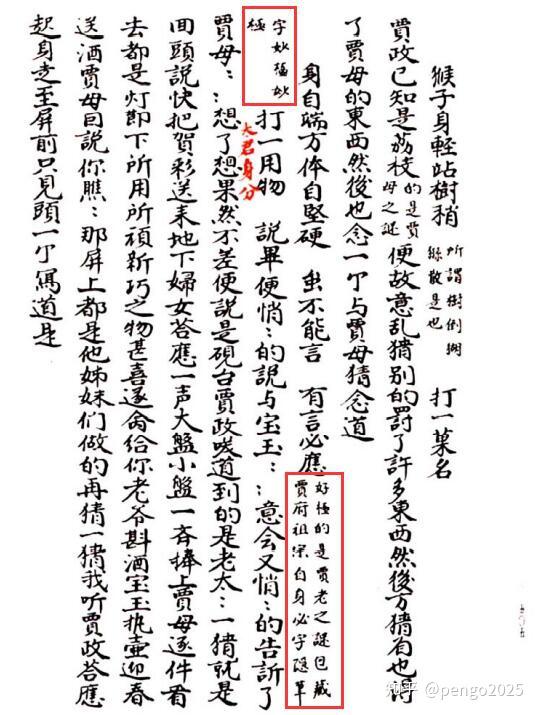 猴子身輕站樹梢 所謂樹倒猢猻散是也 打一菓名
賈政已知是荔枝 的是賈母之謎 便故意乱猜别的罰了許多東西然後方猜有也淂
了賈母的東西然後也念一个与賈母猜念道
身自端方体自堅硬 虽不能言 有言必應 好極的是賈老之謎包藏賈府祖宗自身必字隱草
字妙極妙極 打一用物 說畢便悄:的說与宝玉::意会又悄:的告訢了
太君身分
賈母::想了想果然不差便說是硯台賈政咲道到的是老太:一猜就是
回頭說快把賀彩送耒地下婦女答應一声大盤小盤一斉捧上賈母逐件看
去都是灯節下所用所頑新巧之物甚喜遂命給你老爷斟酒宝玉执壷迎春
送酒賈母曰說你瞧:那屏上都是他姊妹们做的再猜一猜我听賈政答應
起身走至屏前只見頭一个寫道是
知乎 @pengo2025